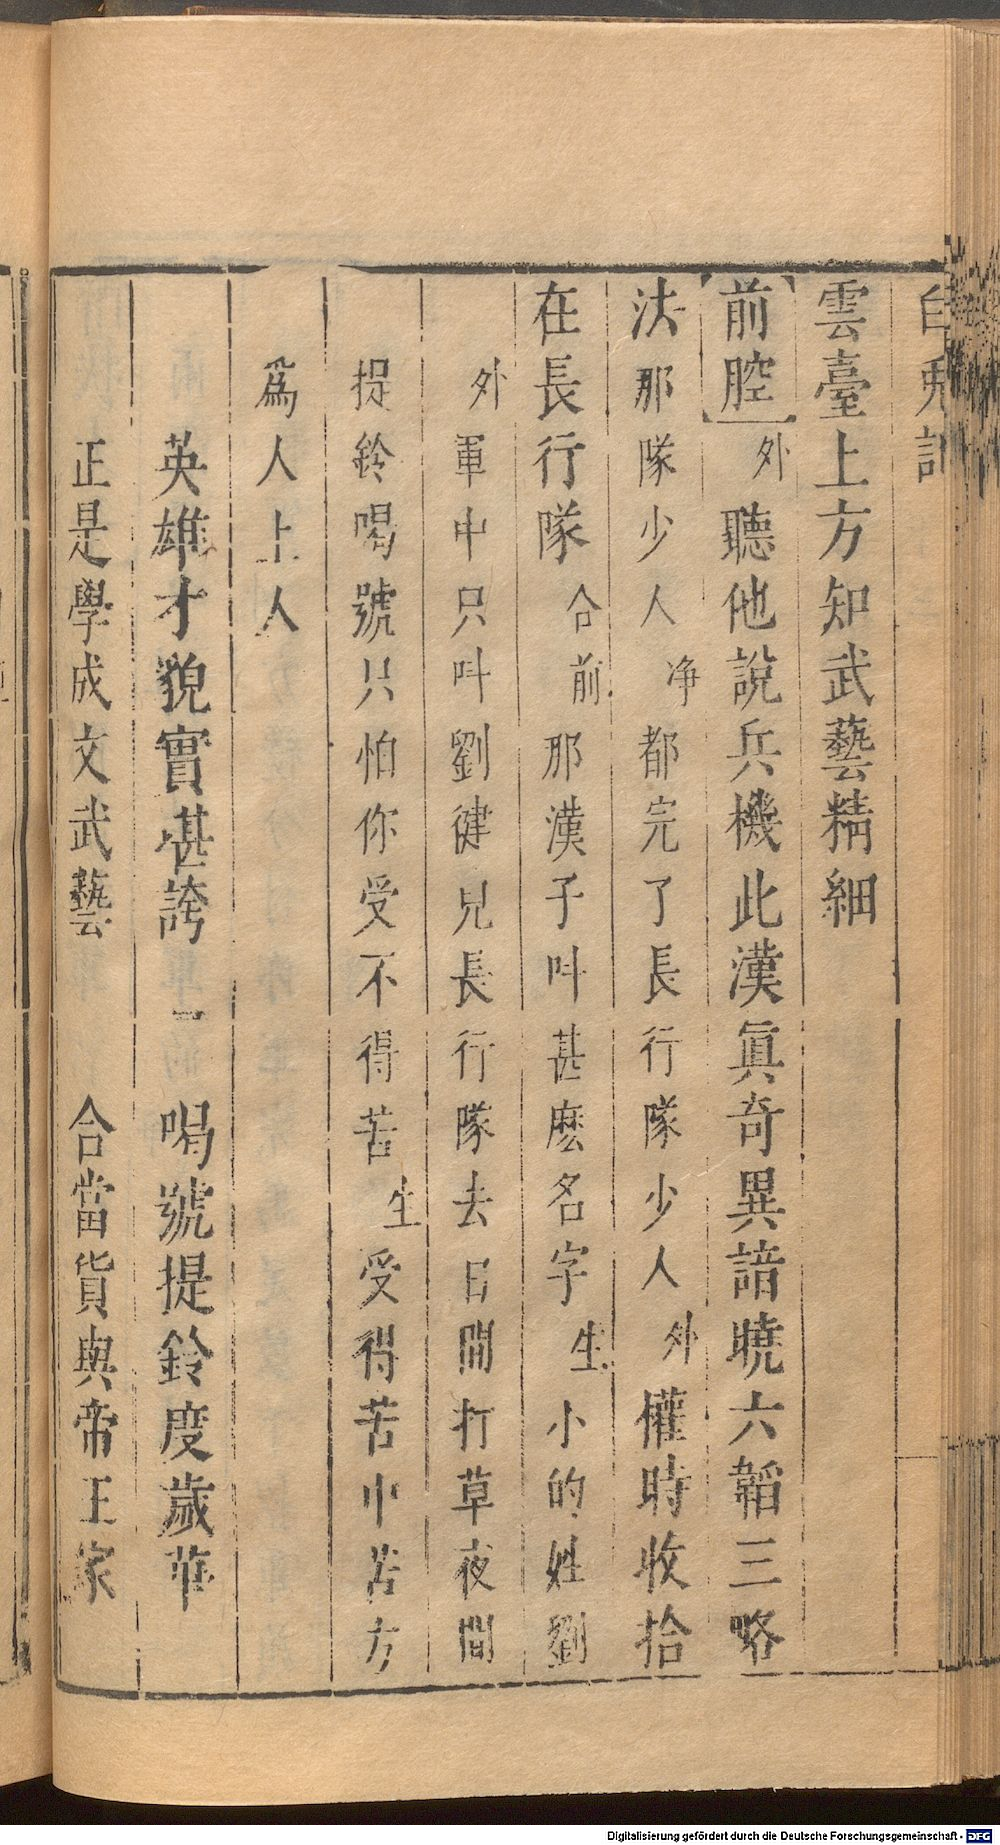 白兎記
雲臺上方知武藝精細
前腔 外 聽他說兵機此漢眞奇異諳曉六韜三略
法那隊少人 净 都完了長行隊少人 外 權時收拾
在長行隊 合前 那漢子叫甚麽名字 生 小的姓劉
外 軍中只叫劉健兒長行隊去日間打草夜間
提鈴喝號只怕你受不得苦 生 受得苦中苦方
爲人上人
英雄才貌實堪誇 喝號提鈴度歲華
正是學成文武藝 合當貨與帝王家
Digitalisierung gefördert durch die Deutsche Forschungsgemeinschaft - DFG